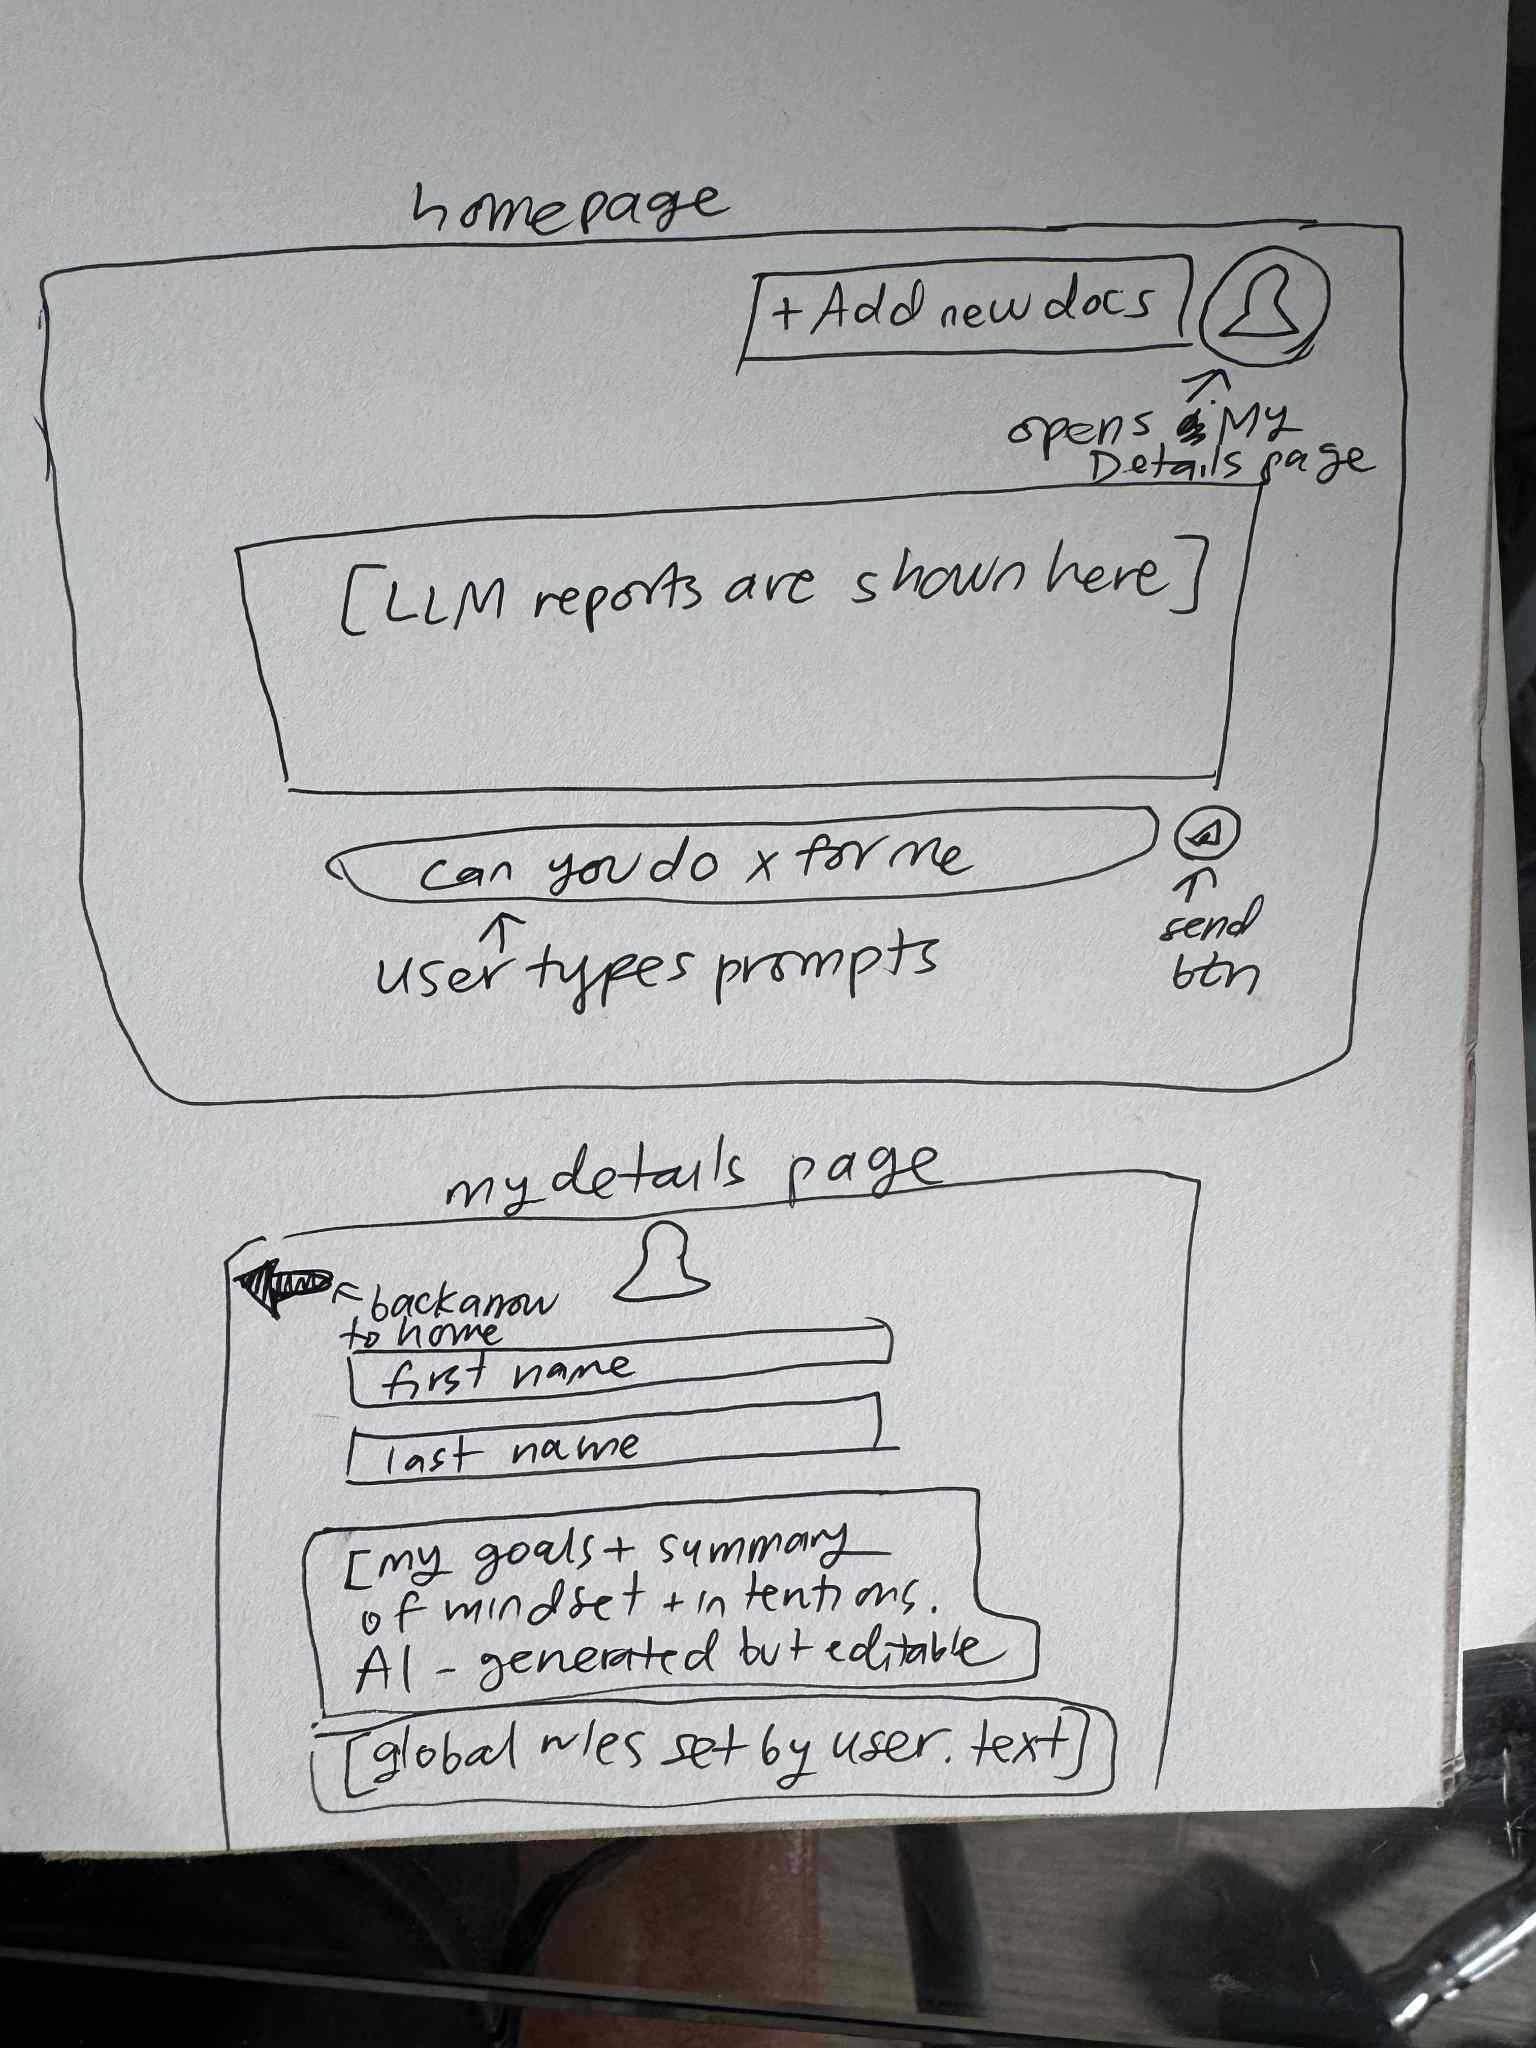 homepage
+ Add new docs
opens My
Details page
[LLM reports are shown here]
can you do x for me
user types prompts
send
btn
my details page
back arrow
to home
first name
last name
[my goals + summary
of mindset + intentions.
AI - generated but editable
[global rules set by user. text]